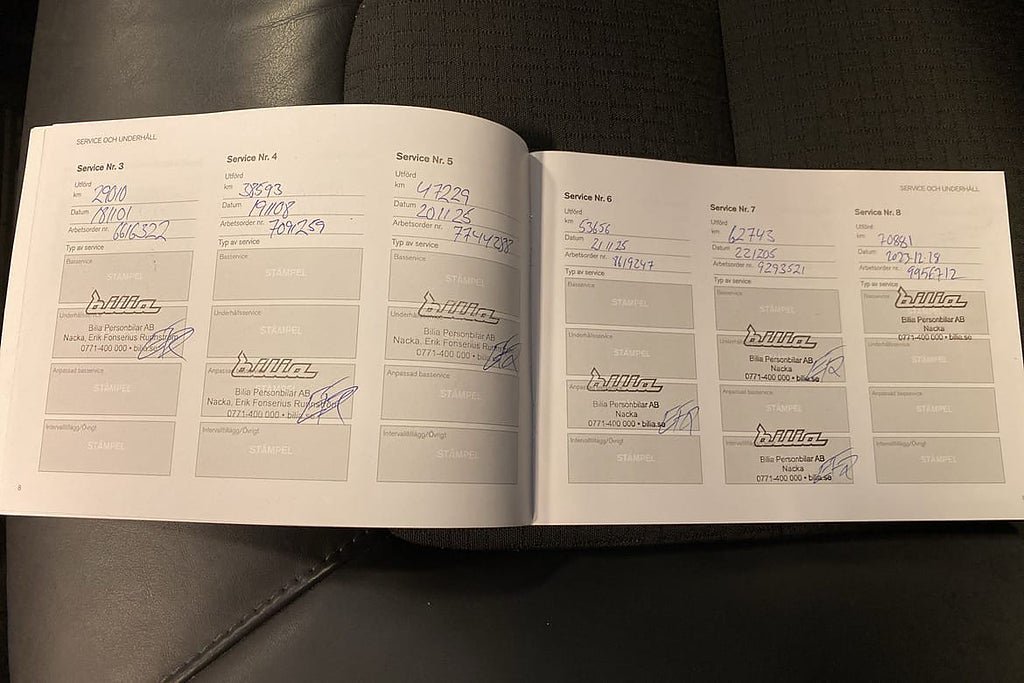 SERVICE OCH UNDERHÅLL
Service Nr. 3
Utförd
km 29010
Datum 181101
Arbetsorder nr. 6616322
Typ av service
Basservice
STÄMPEL
bilia
Underhållsservice
Bilia Personbilar AB
Nacka, Erik Fonserius
0771-400 000 • bilia.se
Anpassad basservice
STÄMPEL
Intervalltillägg/Övrigt
STÄMPEL
8
Service Nr. 4
Utförd
km 38593
Datum 191108
Arbetsorder nr. 7091259
Typ av service
Basservice
STÄMPEL
Underhållsservice
STÄMPEL
bilia
Bilia Personbilar AB
Nacka, Erik Fonserius
0771-400 000 • bilia.se
Intervalltillägg/Övrigt
STÄMPEL
Service Nr. 5
Utförd
km 47229
Datum 201125
Arbetsorder nr. 7744288
Typ av service
Basservice
STÄMPEL
bilia
Bilia Personbilar AB
Nacka, Erik Fonserius
0771-400 000 • bilia.se
Anpassad basservice
STÄMPEL
Intervalltillägg/Övrigt
STÄMPEL
SERVICE OCH UNDERHÅLL
Service Nr. 6
Utförd
km 53656
Datum 211125
Arbetsorder nr. 8619247
Typ av service
Basservice
STÄMPEL
Underhållsservice
STÄMPEL
bilia
Bilia Personbilar AB
Nacka
0771-400 000 • bilia.se
Intervalltillägg/Övrigt
STÄMPEL
Service Nr. 7
Utförd
km 62743
Datum 221205
Arbetsorder nr. 9293521
Typ av service
Basservice
STÄMPEL
bilia
Bilia Personbilar AB
Nacka
0771-400 000 • bilia.se
Anpassad basservice
STÄMPEL
bilia
Bilia Personbilar AB
Nacka
0771-400 000 • bilia.se
Service Nr. 8
Utförd
km 70881
Datum 2023-12-18
Arbetsorder nr. 9956712
Typ av service
Basservice
bilia
Bilia Personbilar AB
Nacka
0771-400 000 • bilia.se
Underhållsservice
STÄMPEL
Anpassad basservice
STÄMPEL
Intervalltillägg/Övrigt
STÄMPEL